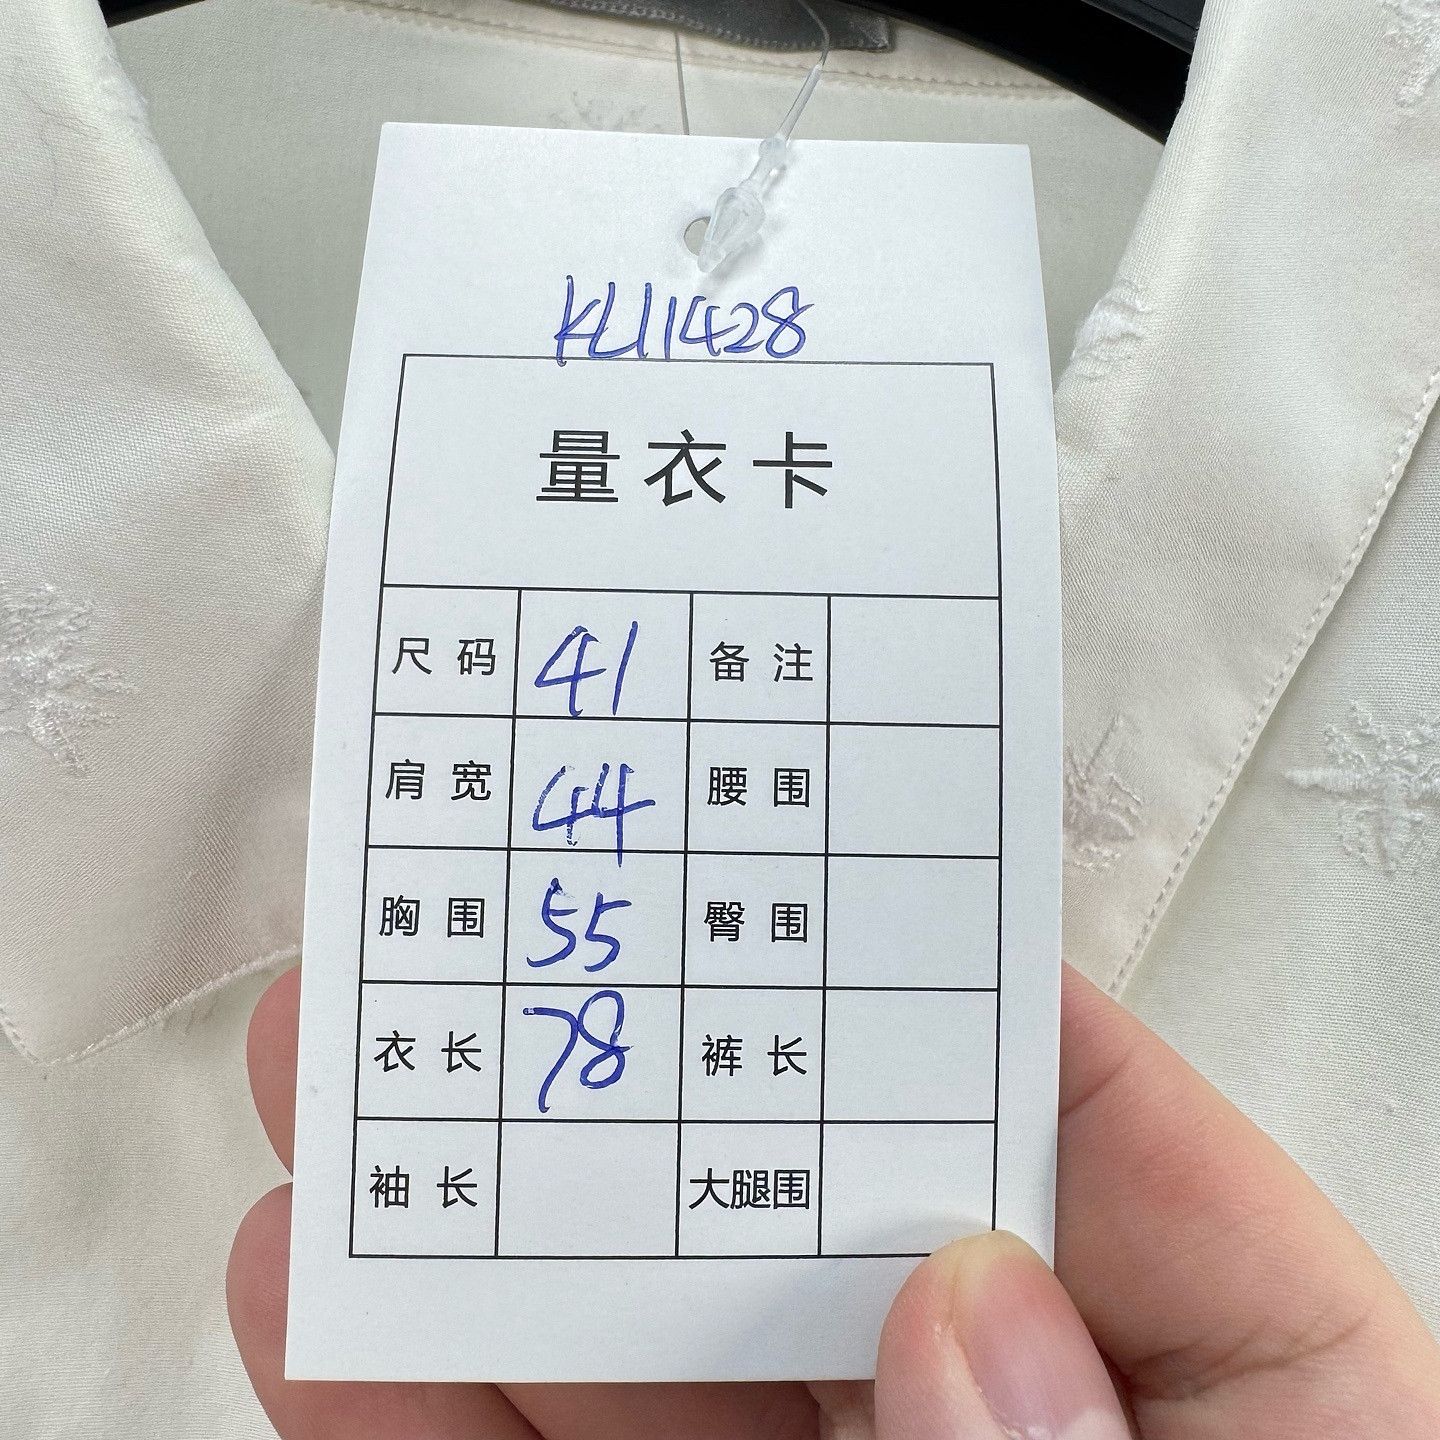 KU11428
量衣卡
尺码 41 备注
肩宽 44 腰围
胸围 55 臀围
衣长 78 裤长
袖长 大腿围